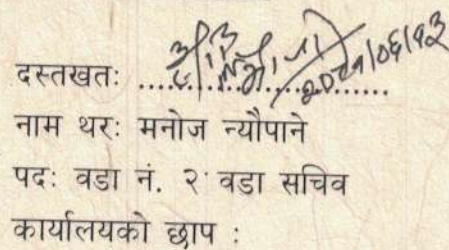 दस्तखतः ........................
२०८१/०६/१३
नाम थरः मनोज न्यौपाने
पदः वडा नं. २ वडा सचिव
कार्यालयको छाप :